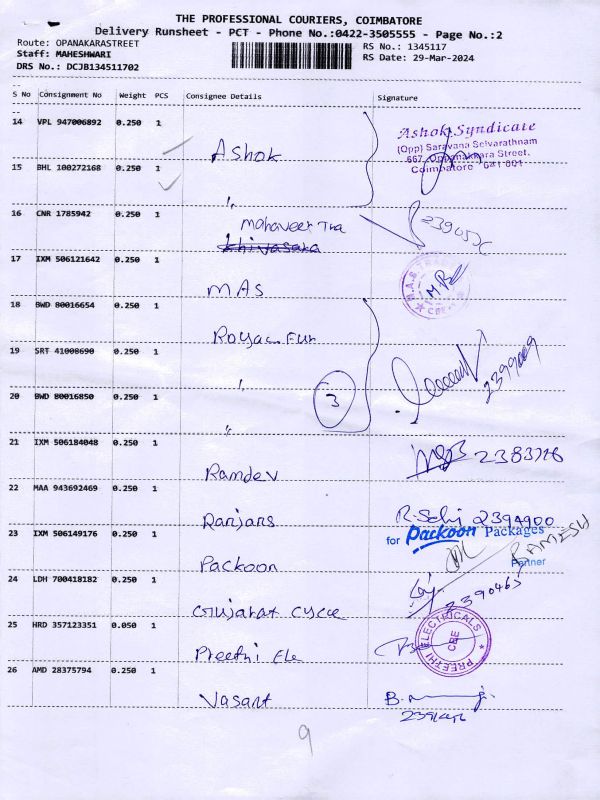 THE PROFESSIONAL COURIERS, COIMBATORE
Delivery Runsheet - PCT - Phone No.:0422-3505555 - Page No.:2
Route: OPANAKARASTREET RS No.: 1345117
Staff: MAHESHWARI RS Date: 29-Mar-2024
DRS No.: DCJB134511702
S No Consignment No Weight PCS Consignee Details Signature
14 VPL 947006892 0.250 1
Ashok
Ashok Syndicate
(Opp) Saravana Selvarathnam
667, Oppanakkara Street,
Coimbatore 641 001
15 BHL 100272168 0.250 1
"
16 CNR 1785942 0.250 1
Mahaveer Tra
17 IXM 506121642 0.250 1
MAS
CBE
18 BWD 80016654 0.250 1
Royal Fur
19 SRT 41008690 0.250 1
"
2399009
20 BWD 80016850 0.250 1
3
"
21 IXM 506184048 0.250 1
Ramdev
22 MAA 943692469 0.250 1
Ranjans
2394900
23 IXM 506149176 0.250 1
Packoon
for Packoon Packages
RAMESH
Partner
24 LDH 700418182 0.250 1
Gujarat Cycle
2390465
25 HRD 357123351 0.050 1
Preethi Ele
PREETHI ELECTRICALS
CBE
26 AMD 28375794 0.250 1
Vasant
9